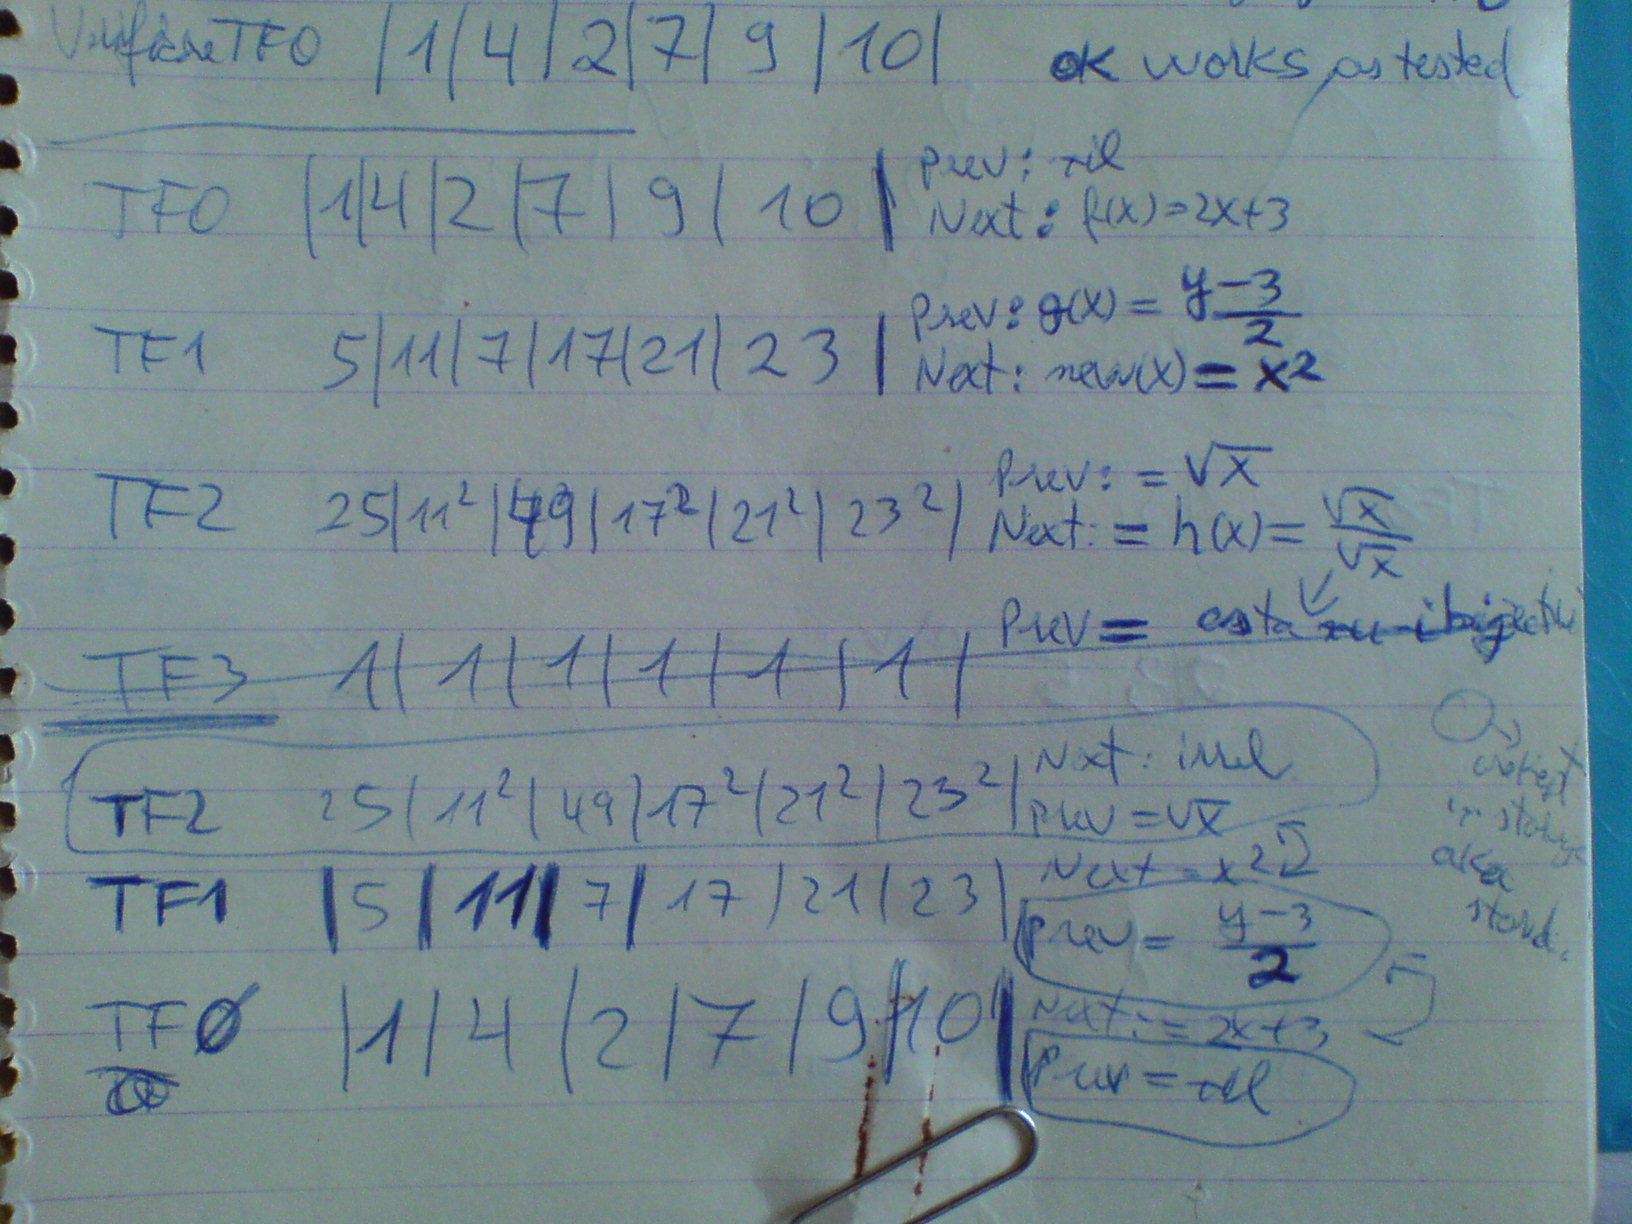 TF0 |1|4|2|7|9|10| ok works as tested
TF0 |1|4|2|7|9|10| Prev: nil
Next: f(x)=2x+3
TF1 5|11|7|17|21|23| Prev: g(x) = y-3/2
Next: new(x) = x2
TF2 25|11²|49|17²|21²|23²| Prev: = √x
Next: = h(x) = √x/√x
TF3 1|1|1|1|1|1| Prev = asta
TF2 25|11²|49|17²|21²|23²| Next:
Prev = √x
TF1 |5|11|7|17|21|23| Next = x2
Prev = y-3/2
TF0 |1|4|2|7|9|10| Next: = 2x+3
Prev = nil
in
aka